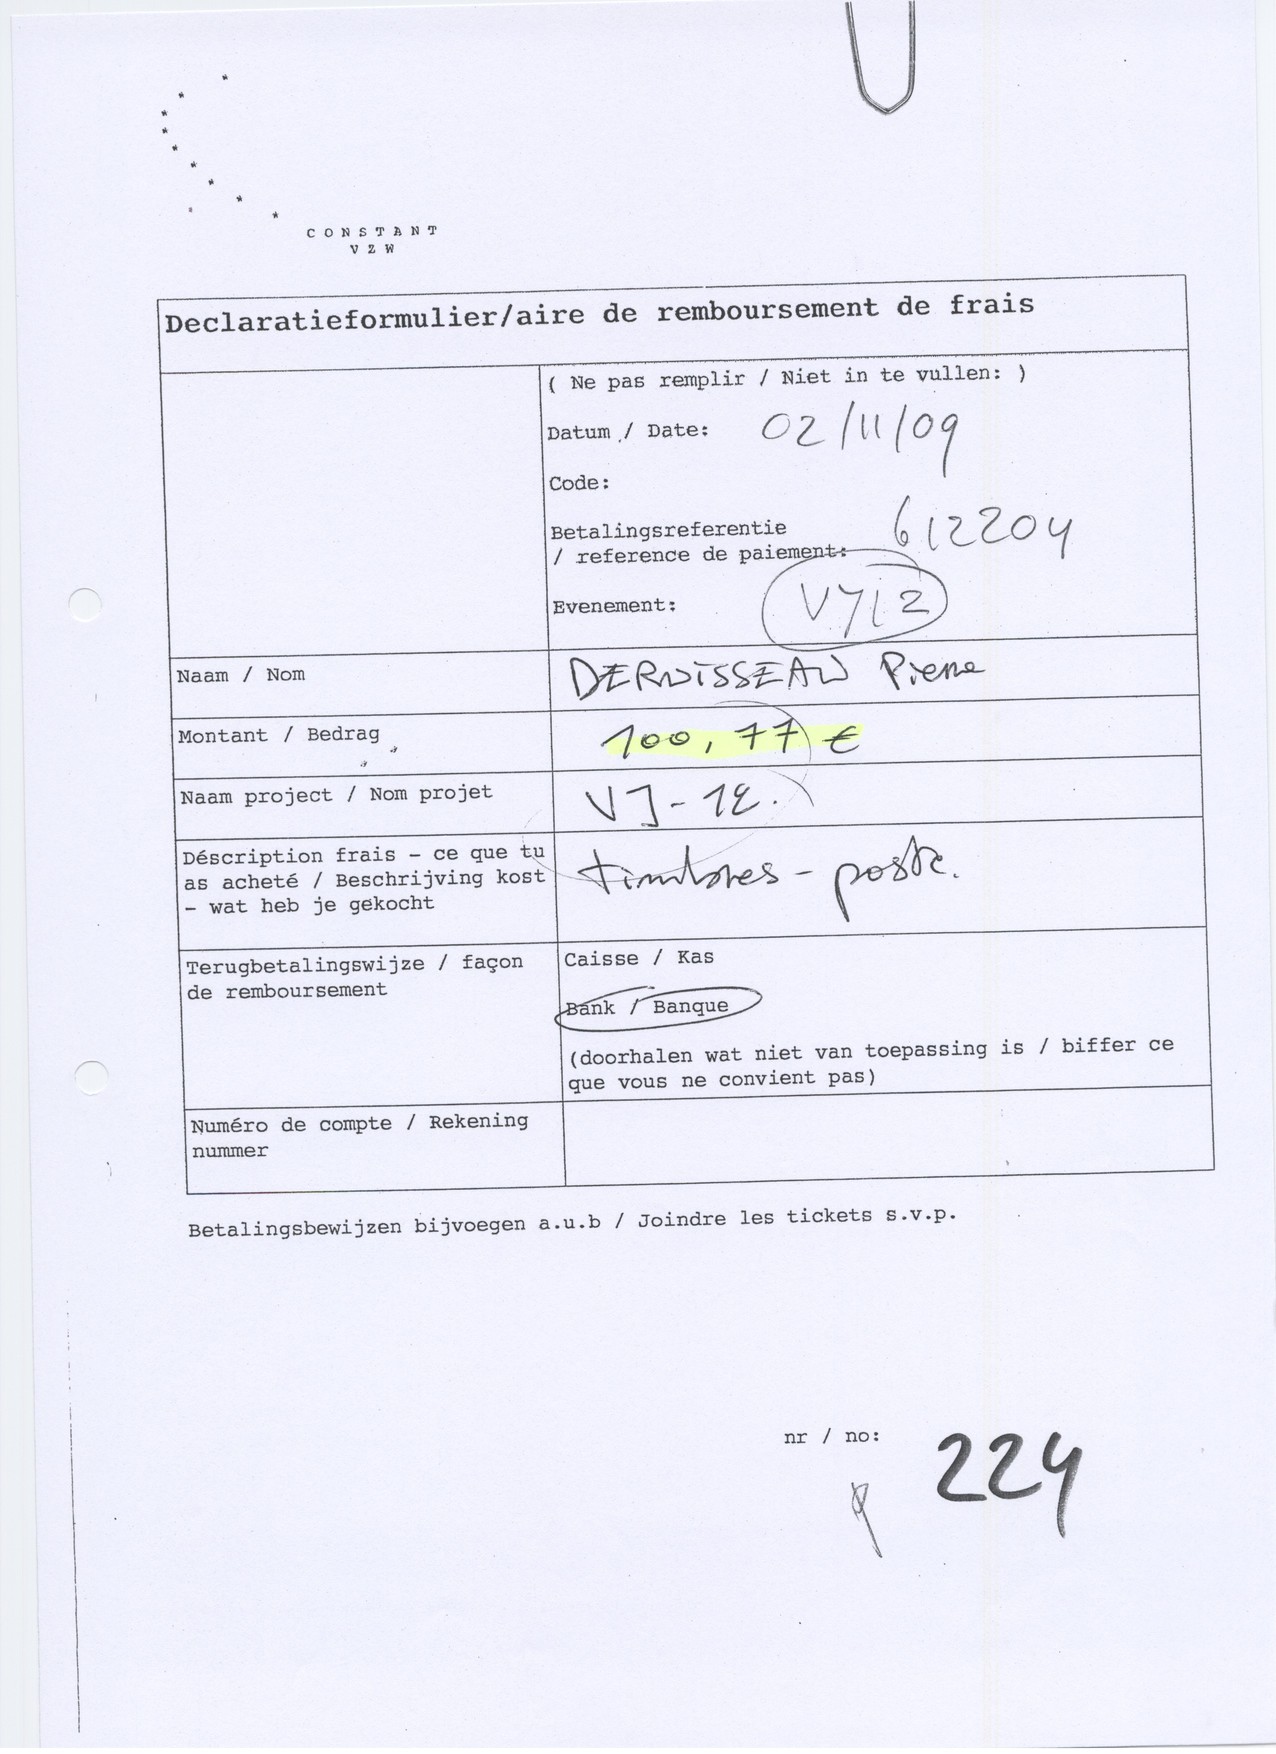 CONSTANT
VZW
Declaratieformulier/aire de remboursement de frais
( Ne pas remplir / Niet in te vullen: )
Datum / Date: 02/11/09
Code:
Betalingsreferentie
/ reference de paiement: 612204
Evenement: VJ12
Naam / Nom DERWISSEAU Pierre
Montant / Bedrag 100,77 €
Naam project / Nom projet VJ-12.
Déscription frais - ce que tu
as acheté / Beschrijving kost
- wat heb je gekocht
timbres-poste.
Terugbetalingswijze / façon
de remboursement
Caisse / Kas
Bank / Banque
(doorhalen wat niet van toepassing is / biffer ce
que vous ne convient pas)
Numéro de compte / Rekening
nummer
Betalingsbewijzen bijvoegen a.u.b / Joindre les tickets s.v.p.
nr / no: 224